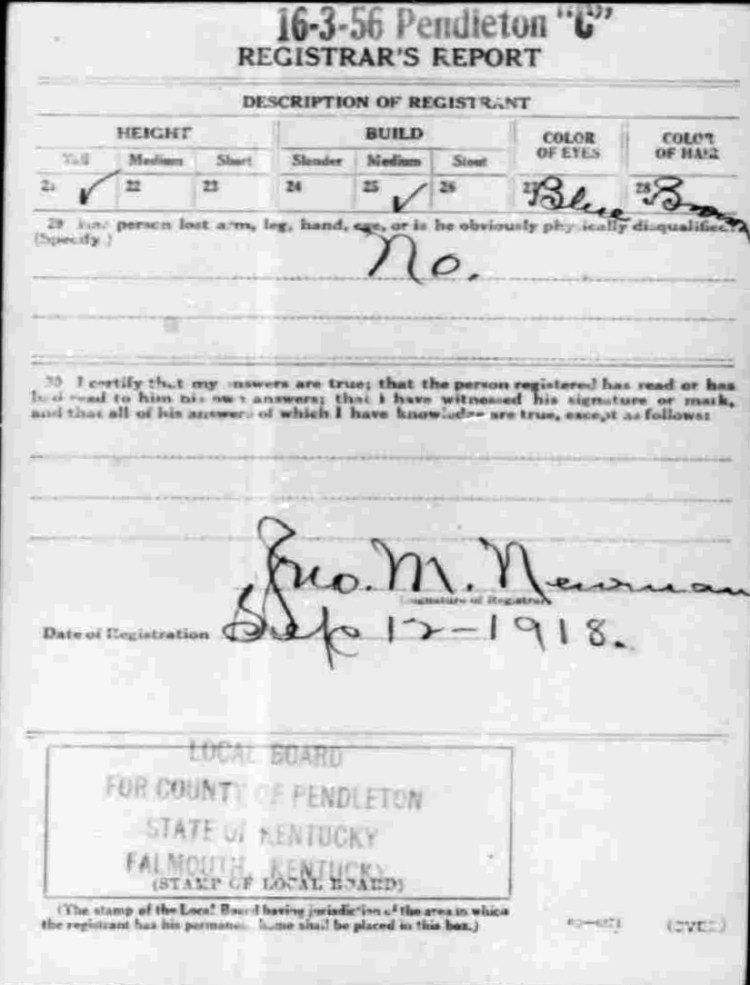 16-3-56 Pendleton "C"
REGISTRAR'S REPORT
DESCRIPTION OF REGISTRANT
HEIGHT BUILD COLOR OF EYES COLOR OF HAIR
Tall Medium Short Slender Medium Stout
21 ✓ 22 23 24 25 ✓ 26 27 Blue 28 Brown
29 Has person lost arm, leg, hand, eye, or is he obviously physically disqualified?
(Specify.)
No.
30 I certify that my answers are true; that the person registered has read or has
had read to him his own answers; that I have witnessed his signature or mark,
and that all of his answers of which I have knowledge are true, except as follows:
Jno. M. Newman
(Signature of Registrar)
Date of Registration Sep 12-1918.
LOCAL BOARD
FOR COUNTY OF PENDLETON
STATE OF KENTUCKY
FALMOUTH, KENTUCKY
(STAMP OF LOCAL BOARD)
(The stamp of the Local Board having jurisdiction of the area in which
the registrant has his permanent home shall be placed in this box.)
(OVER)